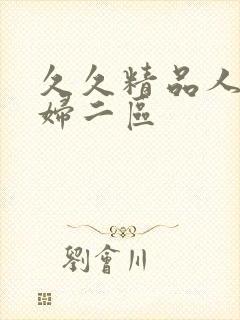 久久精品人
婦二區
劉會川